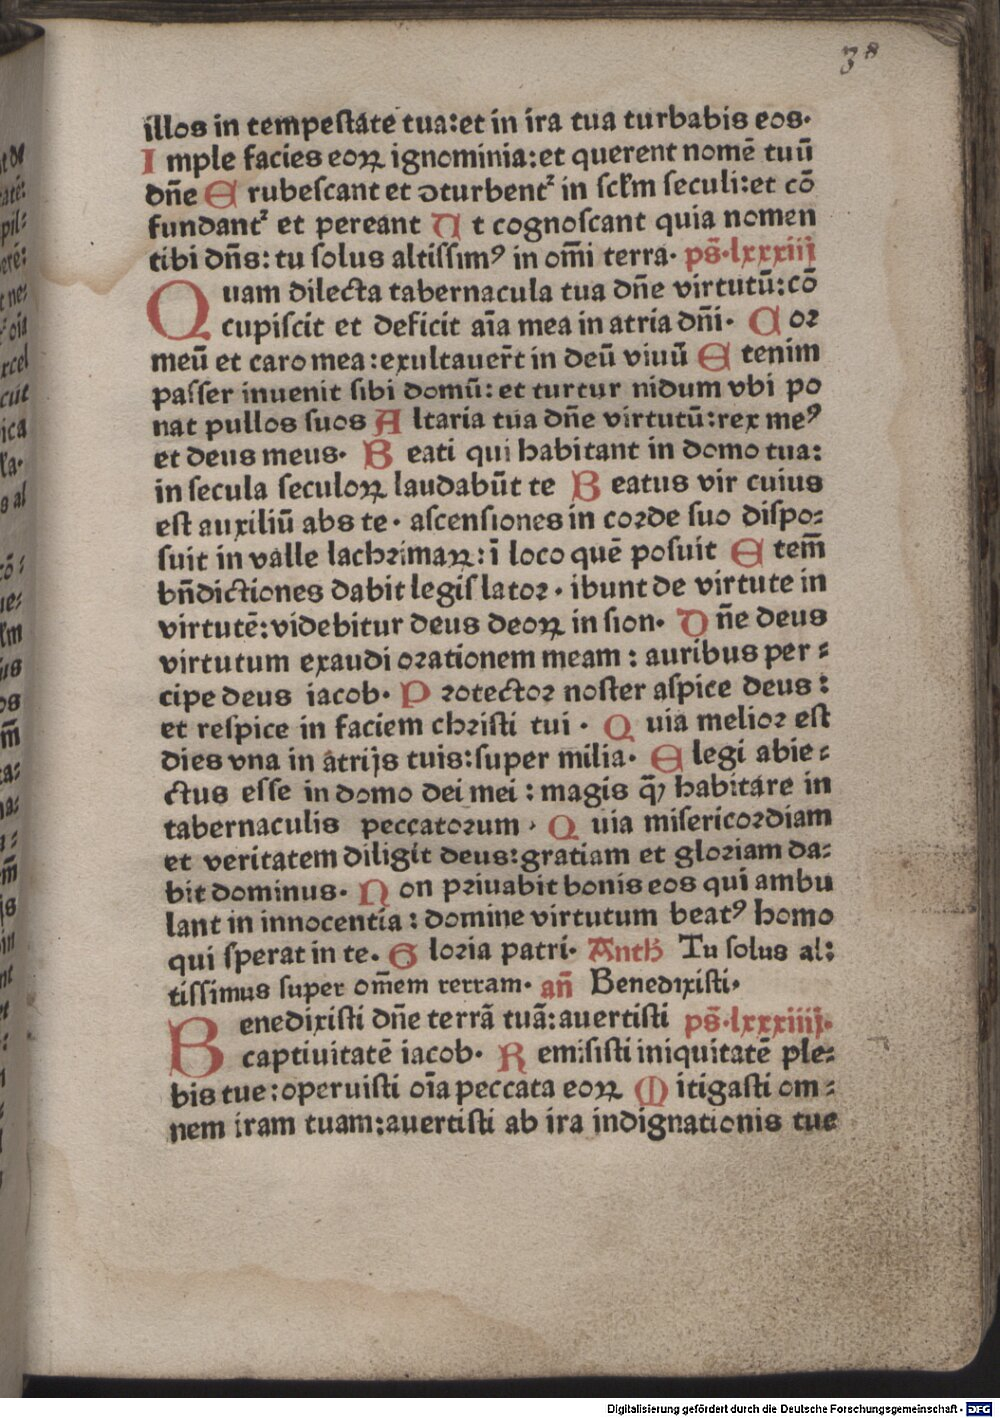 38
illos in tempestate tua: et in ira tua turbabis eos.
Imple facies eoꝝ ignominia: et querent nomē tuū
dn̄e Erubescant et ↄturbentᷣ in scl̄m seculi: et cō
fundantᷣ et pereant Ut cognoscant quia nomen
tibi dn̄s: tu solus altissimꝰ in om̄i terra. ps̄. lxxxiij
Quam dilecta tabernacula tua dn̄e virtutū: cō
cupiscit et deficit aīa mea in atria dn̄i. Cor
meū et caro mea: exultauer̄t in deū viuū Etenim
passer inuenit sibi domū: et turtur nidum vbi po
nat pullos suos Altaria tua dn̄e virtutū: rex meꝰ
et deus meus. Beati qui habitant in domo tua:
in secula seculoꝝ laudabūt te Beatus vir cuius
est auxiliū abs te. ascensiones in corde suo dispo:
suit in valle lachrimaꝝ: ī loco quē posuit Etem̄
bn̄dictiones dabit legis lator. ibunt de virtute in
virtutē: videbitur deus deoꝝ in sion. Dn̄e deus
virtutum exaudi orationem meam: auribus per:
cipe deus iacob. Protector noster aspice deus:
et respice in faciem christi tui. Quia melior est
dies vna in atrijs tuis: super milia. Elegi abie:
ctus esse in domo dei mei: magis qͣ̄ habitare in
tabernaculis peccatorum. Quia misericordiam
et veritatem diligit deus: gratiam et gloriam da:
bit dominus. Non priuabit bonis eos qui ambu
lant in innocentia: domine virtutum beatꝰ homo
qui sperat in te. Gloria patri. Anth Tu solus al:
tissimus super om̄em terram. an̄ Benedixisti.
Benedixisti dn̄e terrā tuā: auertisti ps̄. lxxxiiij.
captiuitatē iacob. Remisisti iniquitatē ple:
bis tue: operuisti oīa peccata eoꝝ Mitigasti om:
nem iram tuam: auertisti ab ira indignationis tue
Digitalisierung gefördert durch die Deutsche Forschungsgemeinschaft - DFG